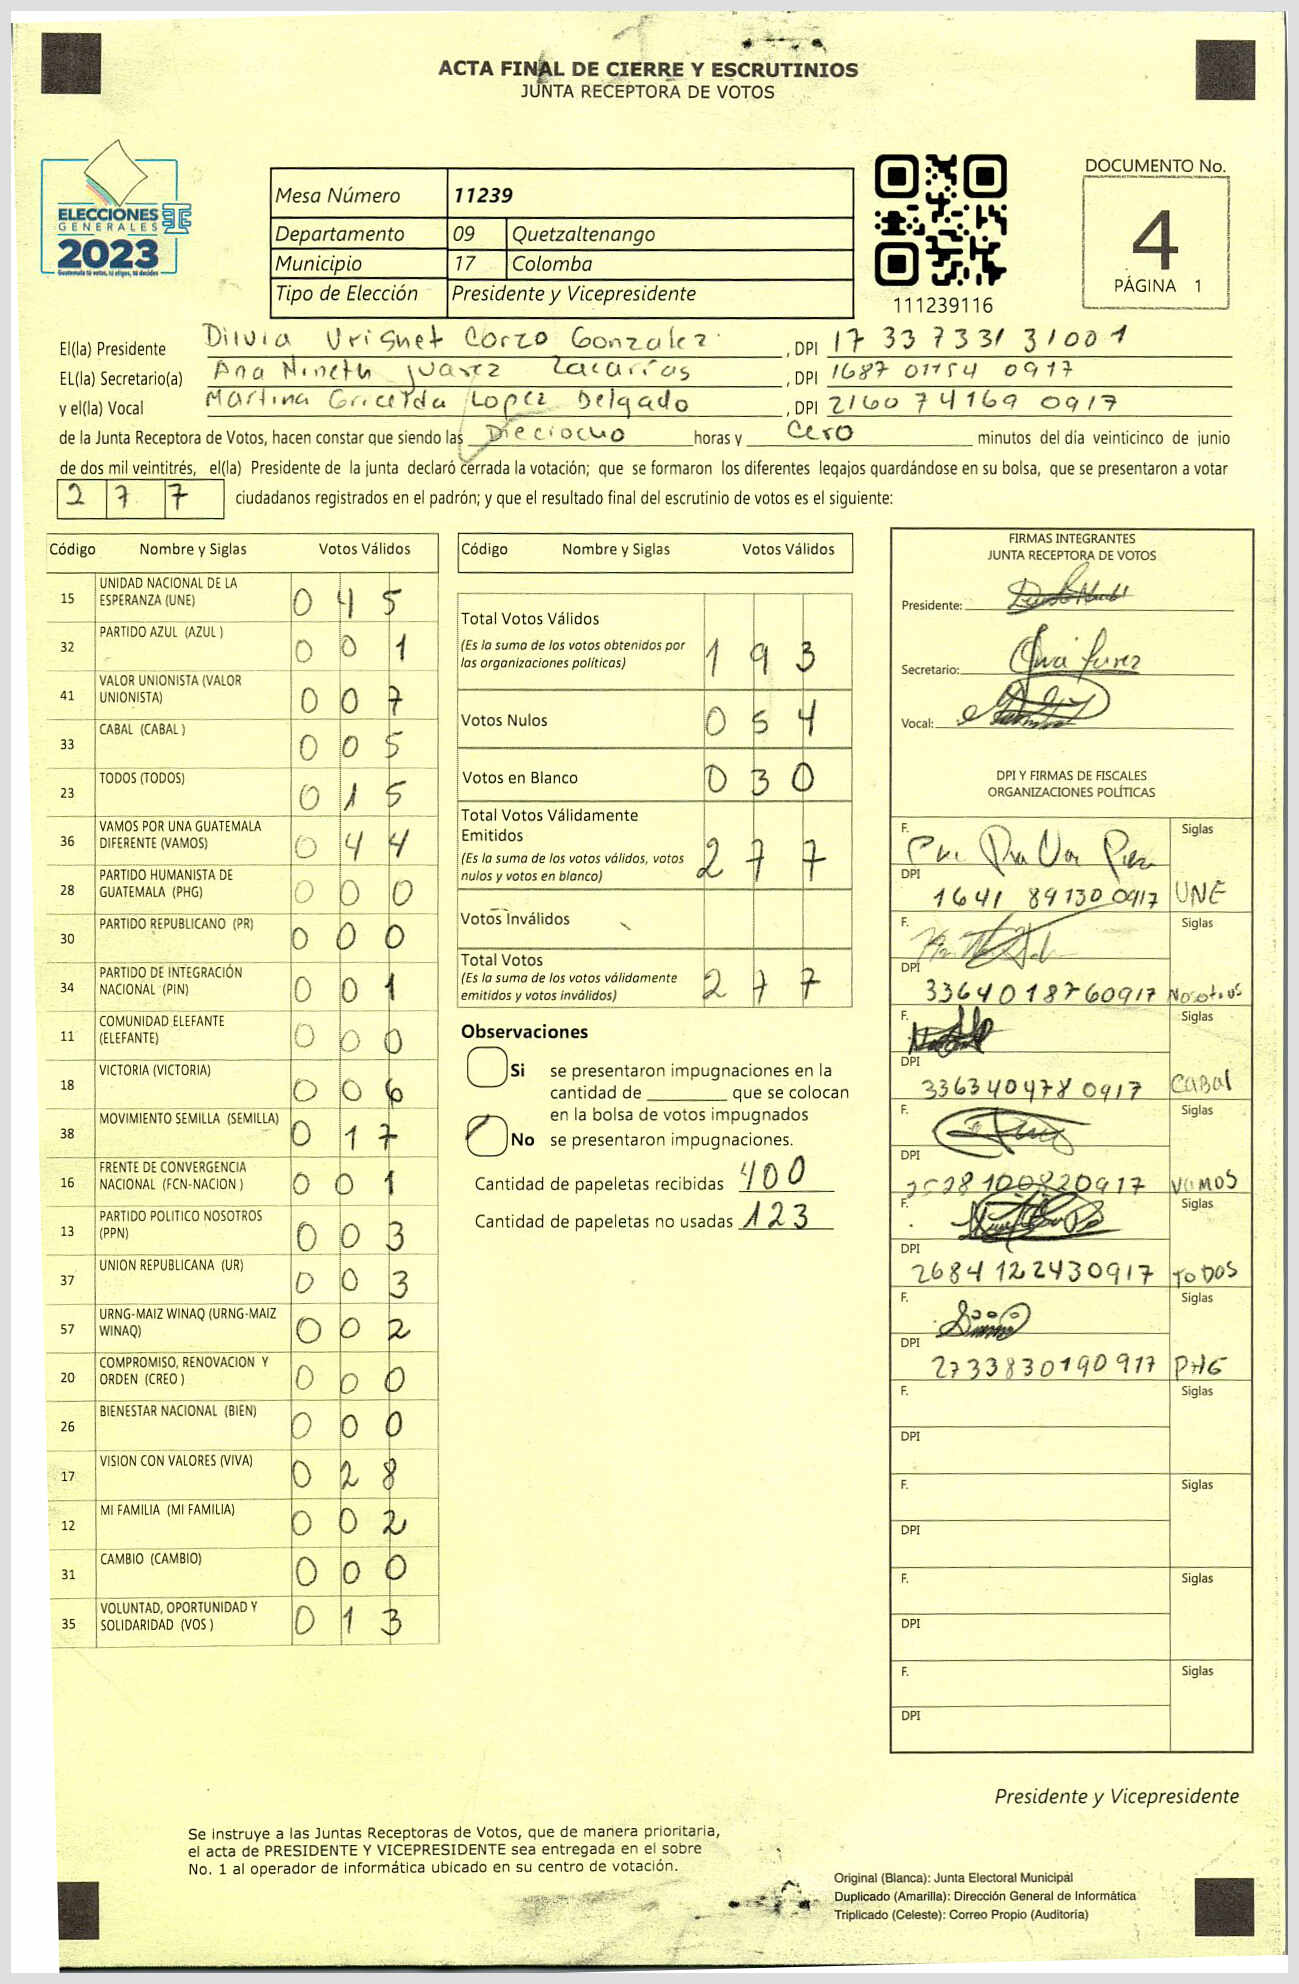 ACTA FINAL DE CIERRE Y ESCRUTINIOS
JUNTA RECEPTORA DE VOTOS
ELECCIONES
GENERALES
2023
Guatemala tú votas, tú eliges, tú decides
Mesa Número 11239
Departamento 09 Quetzaltenango
Municipio 17 Colomba
Tipo de Elección Presidente y Vicepresidente
111239116
DOCUMENTO No.
4
PÁGINA 1
El(la) Presidente Dilvia Corzo Gonzalez, DPI 17 33 7331 31001
EL(la) Secretario(a) Ana Nineth juarez Zacarías, DPI 1687 01154 0917
y el(la) Vocal Martina Gricelda Lopez Delgado, DPI 2160 74169 0917
de la Junta Receptora de Votos, hacen constar que siendo las Dieciocho horas y Cero minutos del día veinticinco de junio
de dos mil veintitrés, el(la) Presidente de la junta declaró cerrada la votación; que se formaron los diferentes legajos quardándose en su bolsa, que se presentaron a votar
2 7 7 ciudadanos registrados en el padrón; y que el resultado final del escrutinio de votos es el siguiente:
Código Nombre y Siglas Votos Válidos
15 UNIDAD NACIONAL DE LA ESPERANZA (UNE) 0 4 5
32 PARTIDO AZUL (AZUL ) 0 0 1
41 VALOR UNIONISTA (VALOR UNIONISTA) 0 0 7
33 CABAL (CABAL ) 0 0 5
23 TODOS (TODOS) 0 1 5
36 VAMOS POR UNA GUATEMALA DIFERENTE (VAMOS) 0 4 4
28 PARTIDO HUMANISTA DE GUATEMALA (PHG) 0 0 0
30 PARTIDO REPUBLICANO (PR) 0 0 0
34 PARTIDO DE INTEGRACIÓN NACIONAL (PIN) 0 0 1
11 COMUNIDAD ELEFANTE (ELEFANTE) 0 0 0
18 VICTORIA (VICTORIA) 0 0 6
38 MOVIMIENTO SEMILLA (SEMILLA) 0 1 7
16 FRENTE DE CONVERGENCIA NACIONAL (FCN-NACION ) 0 0 1
13 PARTIDO POLITICO NOSOTROS (PPN) 0 0 3
37 UNION REPUBLICANA (UR) 0 0 3
57 URNG-MAIZ WINAQ (URNG-MAIZ WINAQ) 0 0 2
20 COMPROMISO, RENOVACION Y ORDEN (CREO ) 0 0 0
26 BIENESTAR NACIONAL (BIEN) 0 0 0
17 VISION CON VALORES (VIVA) 0 2 8
12 MI FAMILIA (MI FAMILIA) 0 0 2
31 CAMBIO (CAMBIO) 0 0 0
35 VOLUNTAD, OPORTUNIDAD Y SOLIDARIDAD (VOS ) 0 1 3
Código Nombre y Siglas Votos Válidos
Total Votos Válidos
(Es la suma de los votos obtenidos por las organizaciones políticas) 1 9 3
Votos Nulos 0 5 4
Votos en Blanco 0 3 0
Total Votos Válidamente Emitidos
(Es la suma de los votos válidos, votos nulos y votos en blanco) 2 7 7
Votos Inválidos
Total Votos
(Es la suma de los votos válidamente emitidos y votos inválidos) 2 7 7
Observaciones
Si se presentaron impugnaciones en la
cantidad de ________ que se colocan
en la bolsa de votos impugnados
No se presentaron impugnaciones.
Cantidad de papeletas recibidas 400
Cantidad de papeletas no usadas 123
FIRMAS INTEGRANTES
JUNTA RECEPTORA DE VOTOS
Presidente:
Secretario:
Vocal:
DPI Y FIRMAS DE FISCALES
ORGANIZACIONES POLÍTICAS
F. Siglas
DPI 1641 89130 0917 UNE
F. Siglas
DPI 3364018760917 Nosotros
F. Siglas
DPI 336340478 0917 CABAl
F. Siglas
DPI 100820917 VAMOS
F. Siglas
DPI 2684122430917 ToDOS
F. Siglas
DPI 2733830190917 PHG
F. Siglas
DPI
F. Siglas
DPI
F. Siglas
DPI
F. Siglas
DPI
Presidente y Vicepresidente
Se instruye a las Juntas Receptoras de Votos, que de manera prioritaria,
el acta de PRESIDENTE Y VICEPRESIDENTE sea entregada en el sobre
No. 1 al operador de informática ubicado en su centro de votación.
Original (Blanca): Junta Electoral Municipal
Duplicado (Amarilla): Dirección General de Informática
Triplicado (Celeste): Correo Propio (Auditoria)